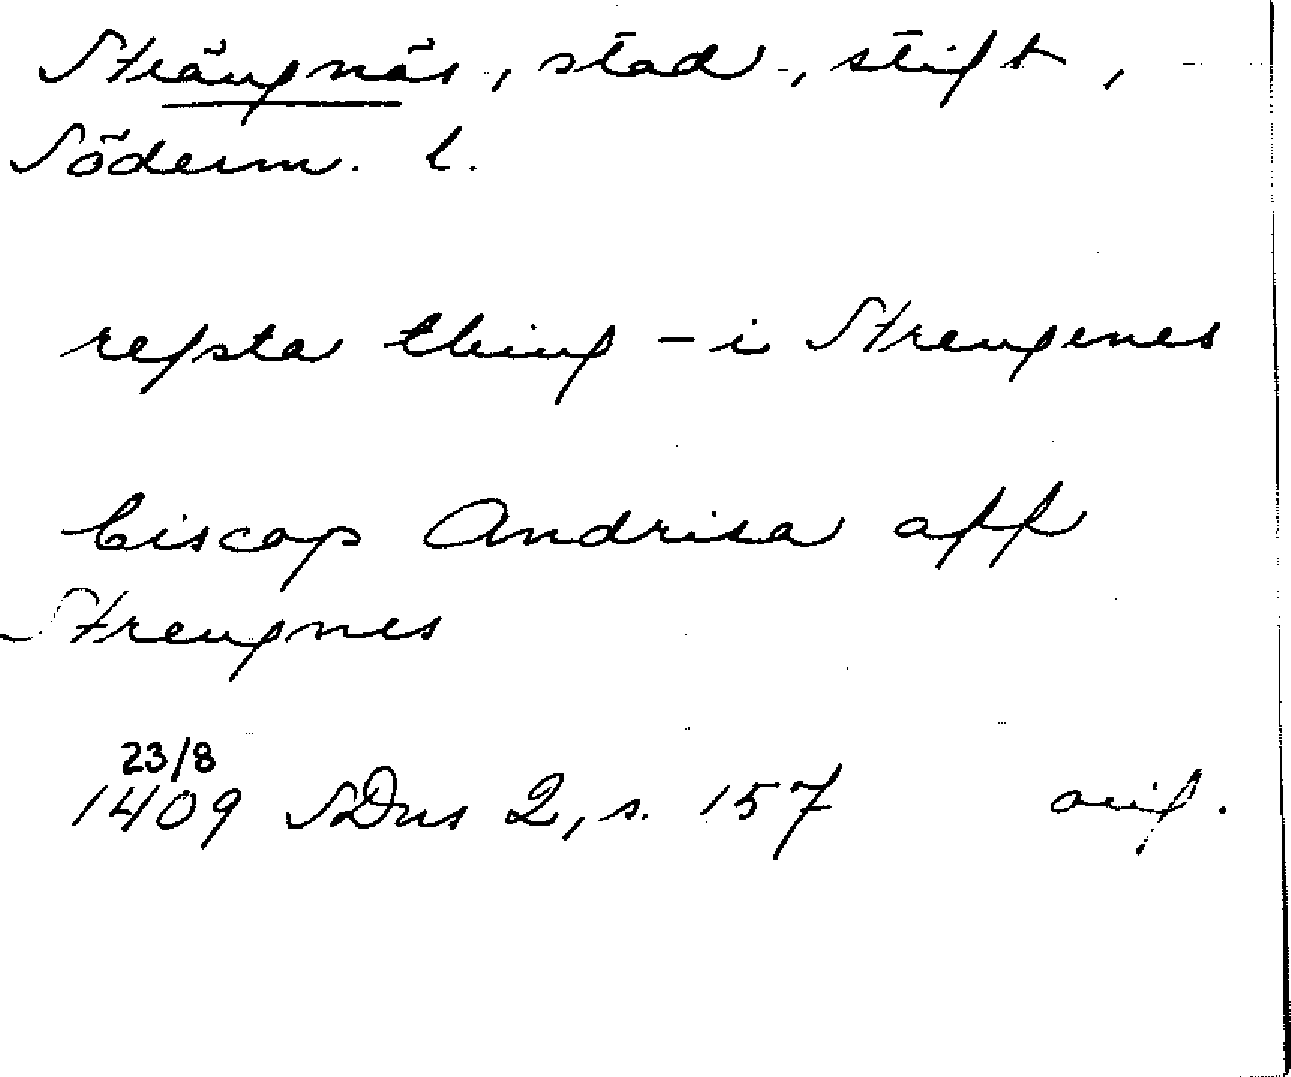 Strängnäs, stad, stift,
Söderm. l.
refsta thing - i Strengenes
biscop Andrisa aff
Strengnes
23/8
1409 SDns 2, s. 157 orig.